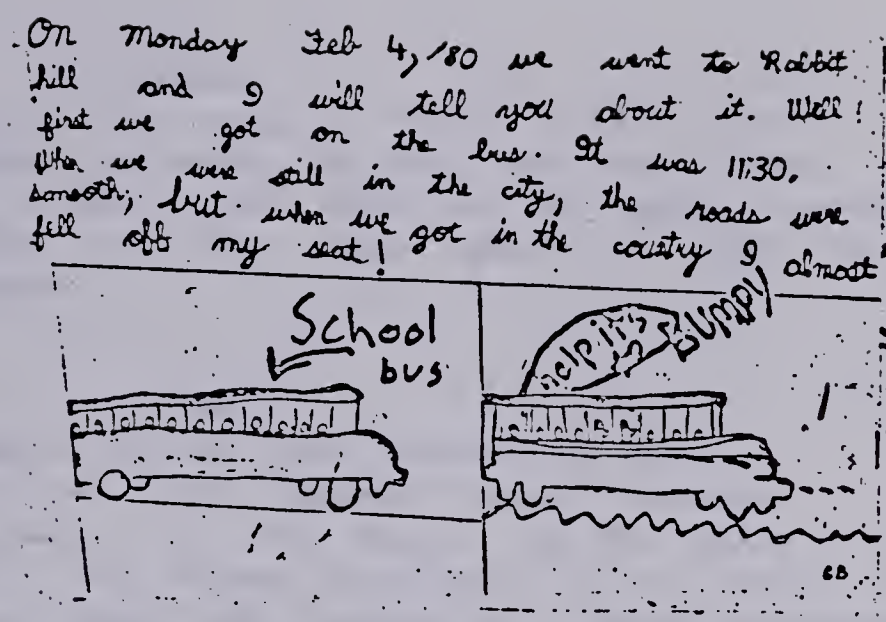 On Monday Feb 4, /80 we went to Rabbit
hill and I will tell you about it. Well!
first we got on the bus. It was 11:30.
When we were still in the city, the roads were
smooth, but when we got in the country I almost
fell off my seat!
School
bus
help its
BUMPY